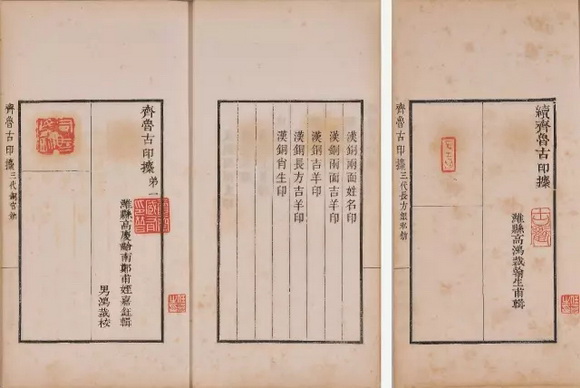 續齊魯古印攈
濰縣高鴻裁翰生甫輯
齊魯古印攈 三代長方銀私鉨
漢銅兩面姓名印
漢銅兩面吉羊印
漢銅吉羊印
漢銅長方吉羊印
漢銅肖生印
齊魯古印攈 第一
濰縣高慶齡南鄭甫姪嘉鈺輯
男鴻裁校
齊魯古印攈 三代銅官鉨